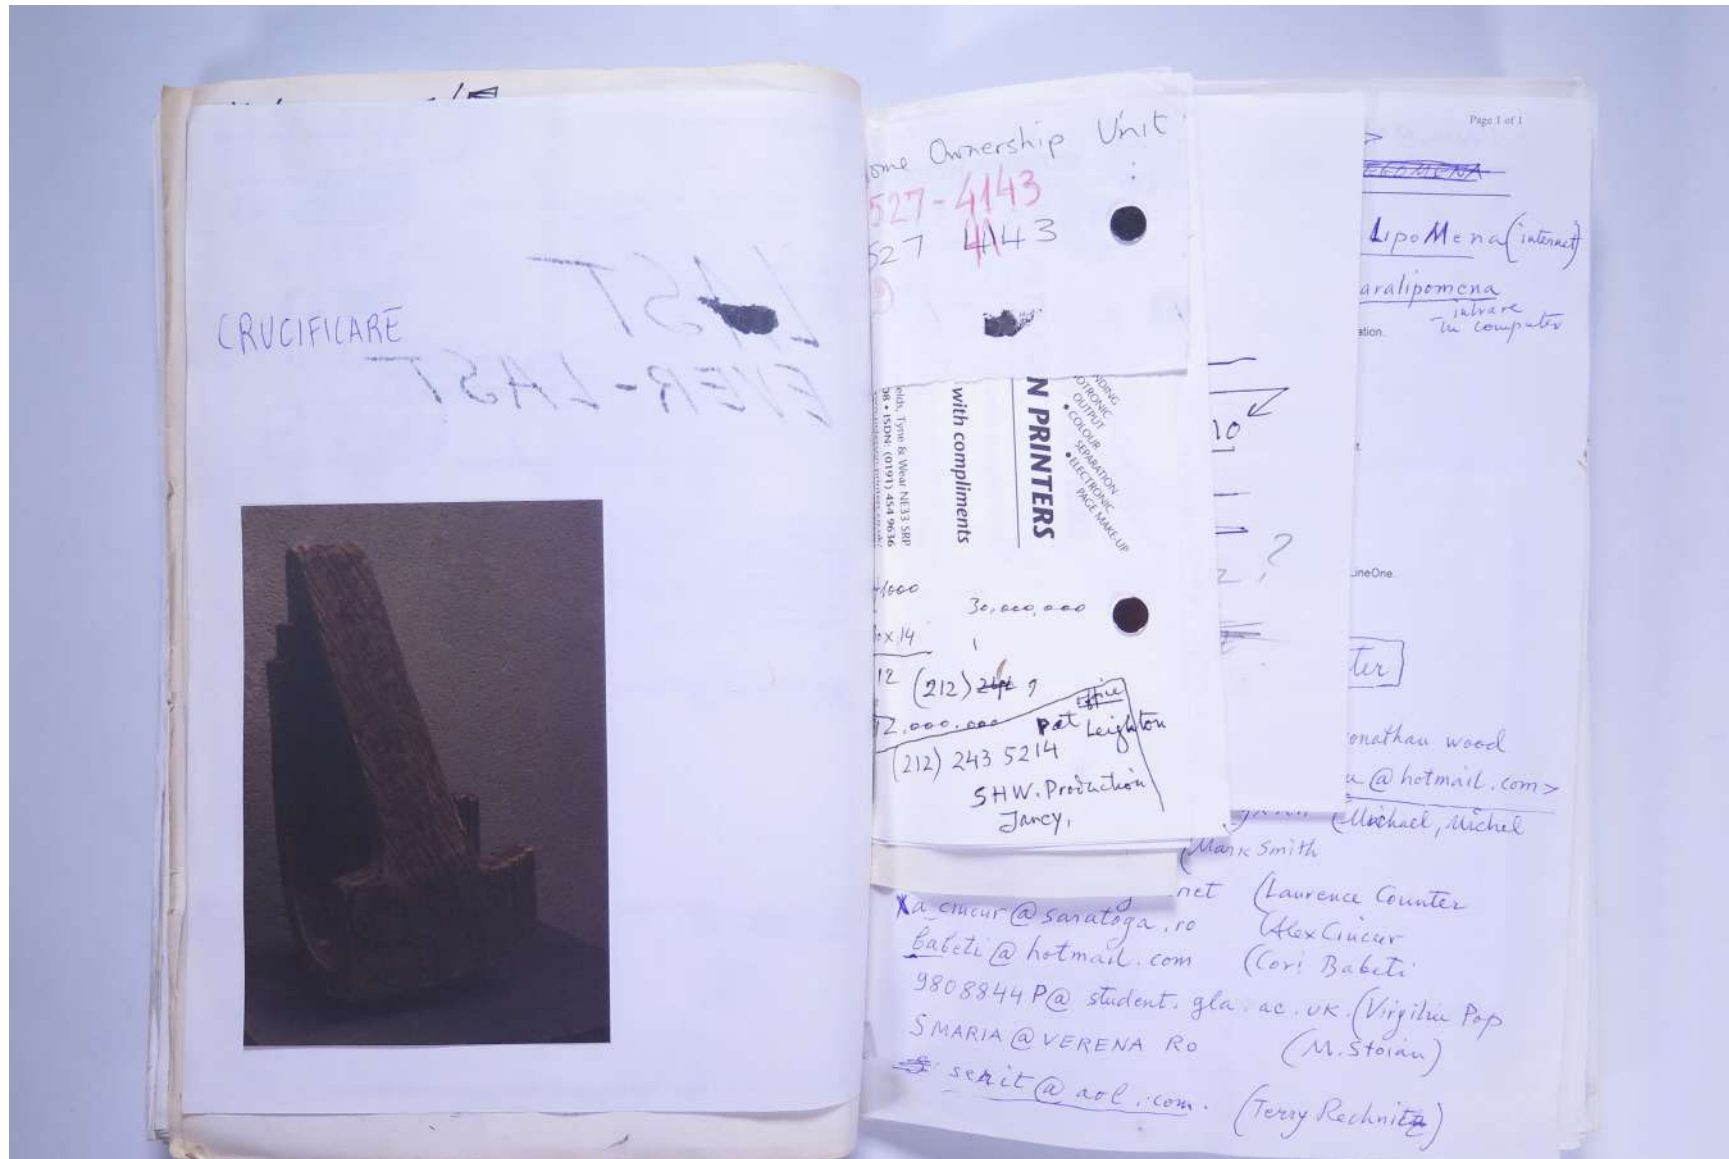 CRUCIFICARE
LAST
EVER-LAST
ome Ownership Unit
527-4143
527 4143
NDING
OTRONIC
OUTPUT
• COLOUR
SEPARATION
• ELECTRONIC
PAGE MAKE-UP
N PRINTERS
with compliments
elds, Tyne & Wear NE33 5RP
08 • ISDN: (0191) 454 9636
30,000,000
x 14
12
(212)
2.000.000
office
Pat Leighton
(212) 243 5214
SHW. Production
Jancy,
10
2 ?
Page 1 of 1
LipoMena (internet)
aralipomena
intrare
in computer
ation.
LineOne.
ter
onathan wood
@hotmail.com>
(Michael, Michel
(Mark Smith
net (Laurence Counter
a_ciucur@saratoga.ro (Alex Ciucur
babeti@hotmail.com (Cori Babeti
9808844P@student.gla.ac.uk. (Virgiliu Pop
SMARIA@VERENA RO (M. Stoian)
senit@aol.com. (Terry Rechnitz)